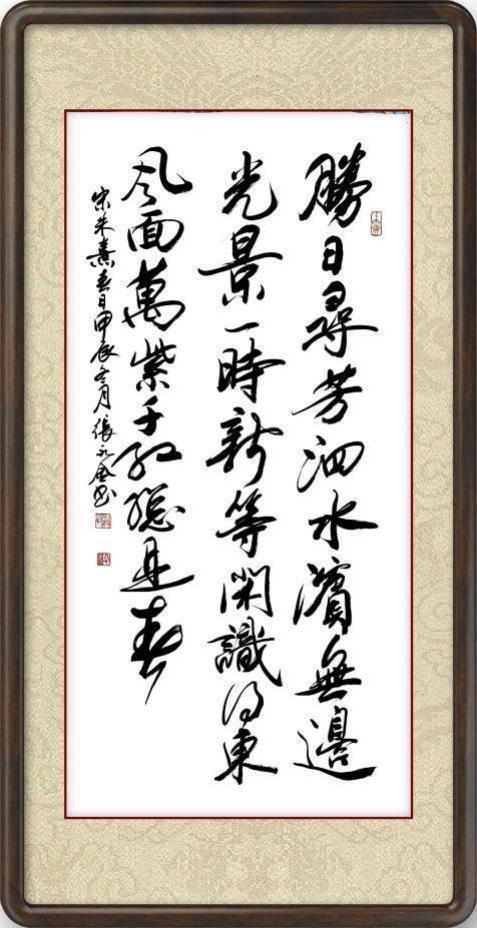 勝日尋芳泗水濱無邊
光景一時新等閑識得東
風面萬紫千紅總是春
宋朱熹春日甲辰冬月張永金书